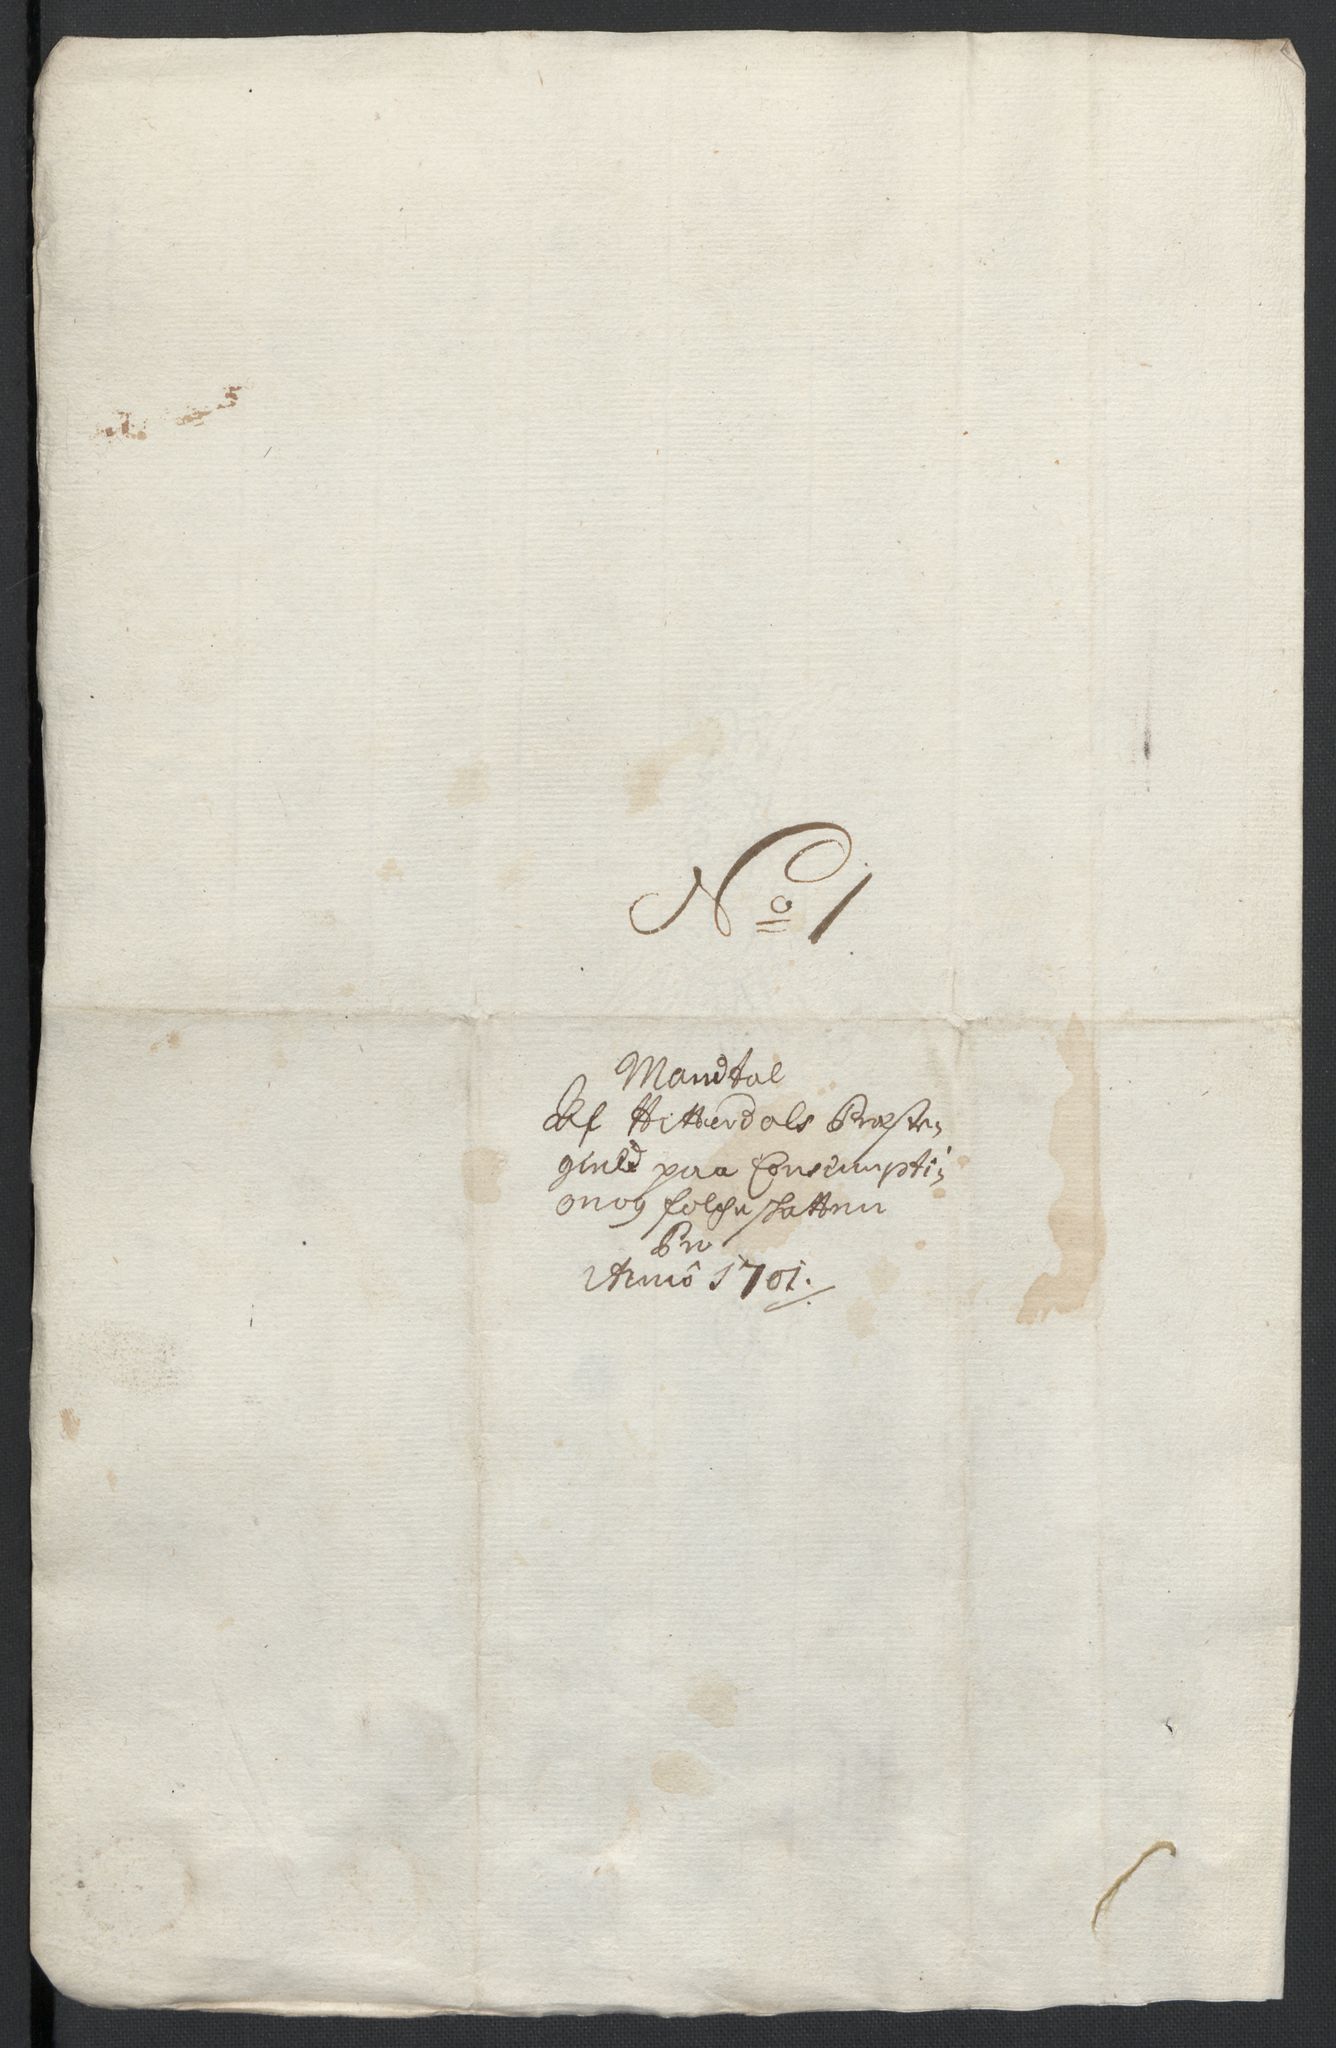 No 1
Mandtal
Af Hitterdals Præste,
gield paa Consumpti,
on og folcke skatten
Pro
Anno 1701.